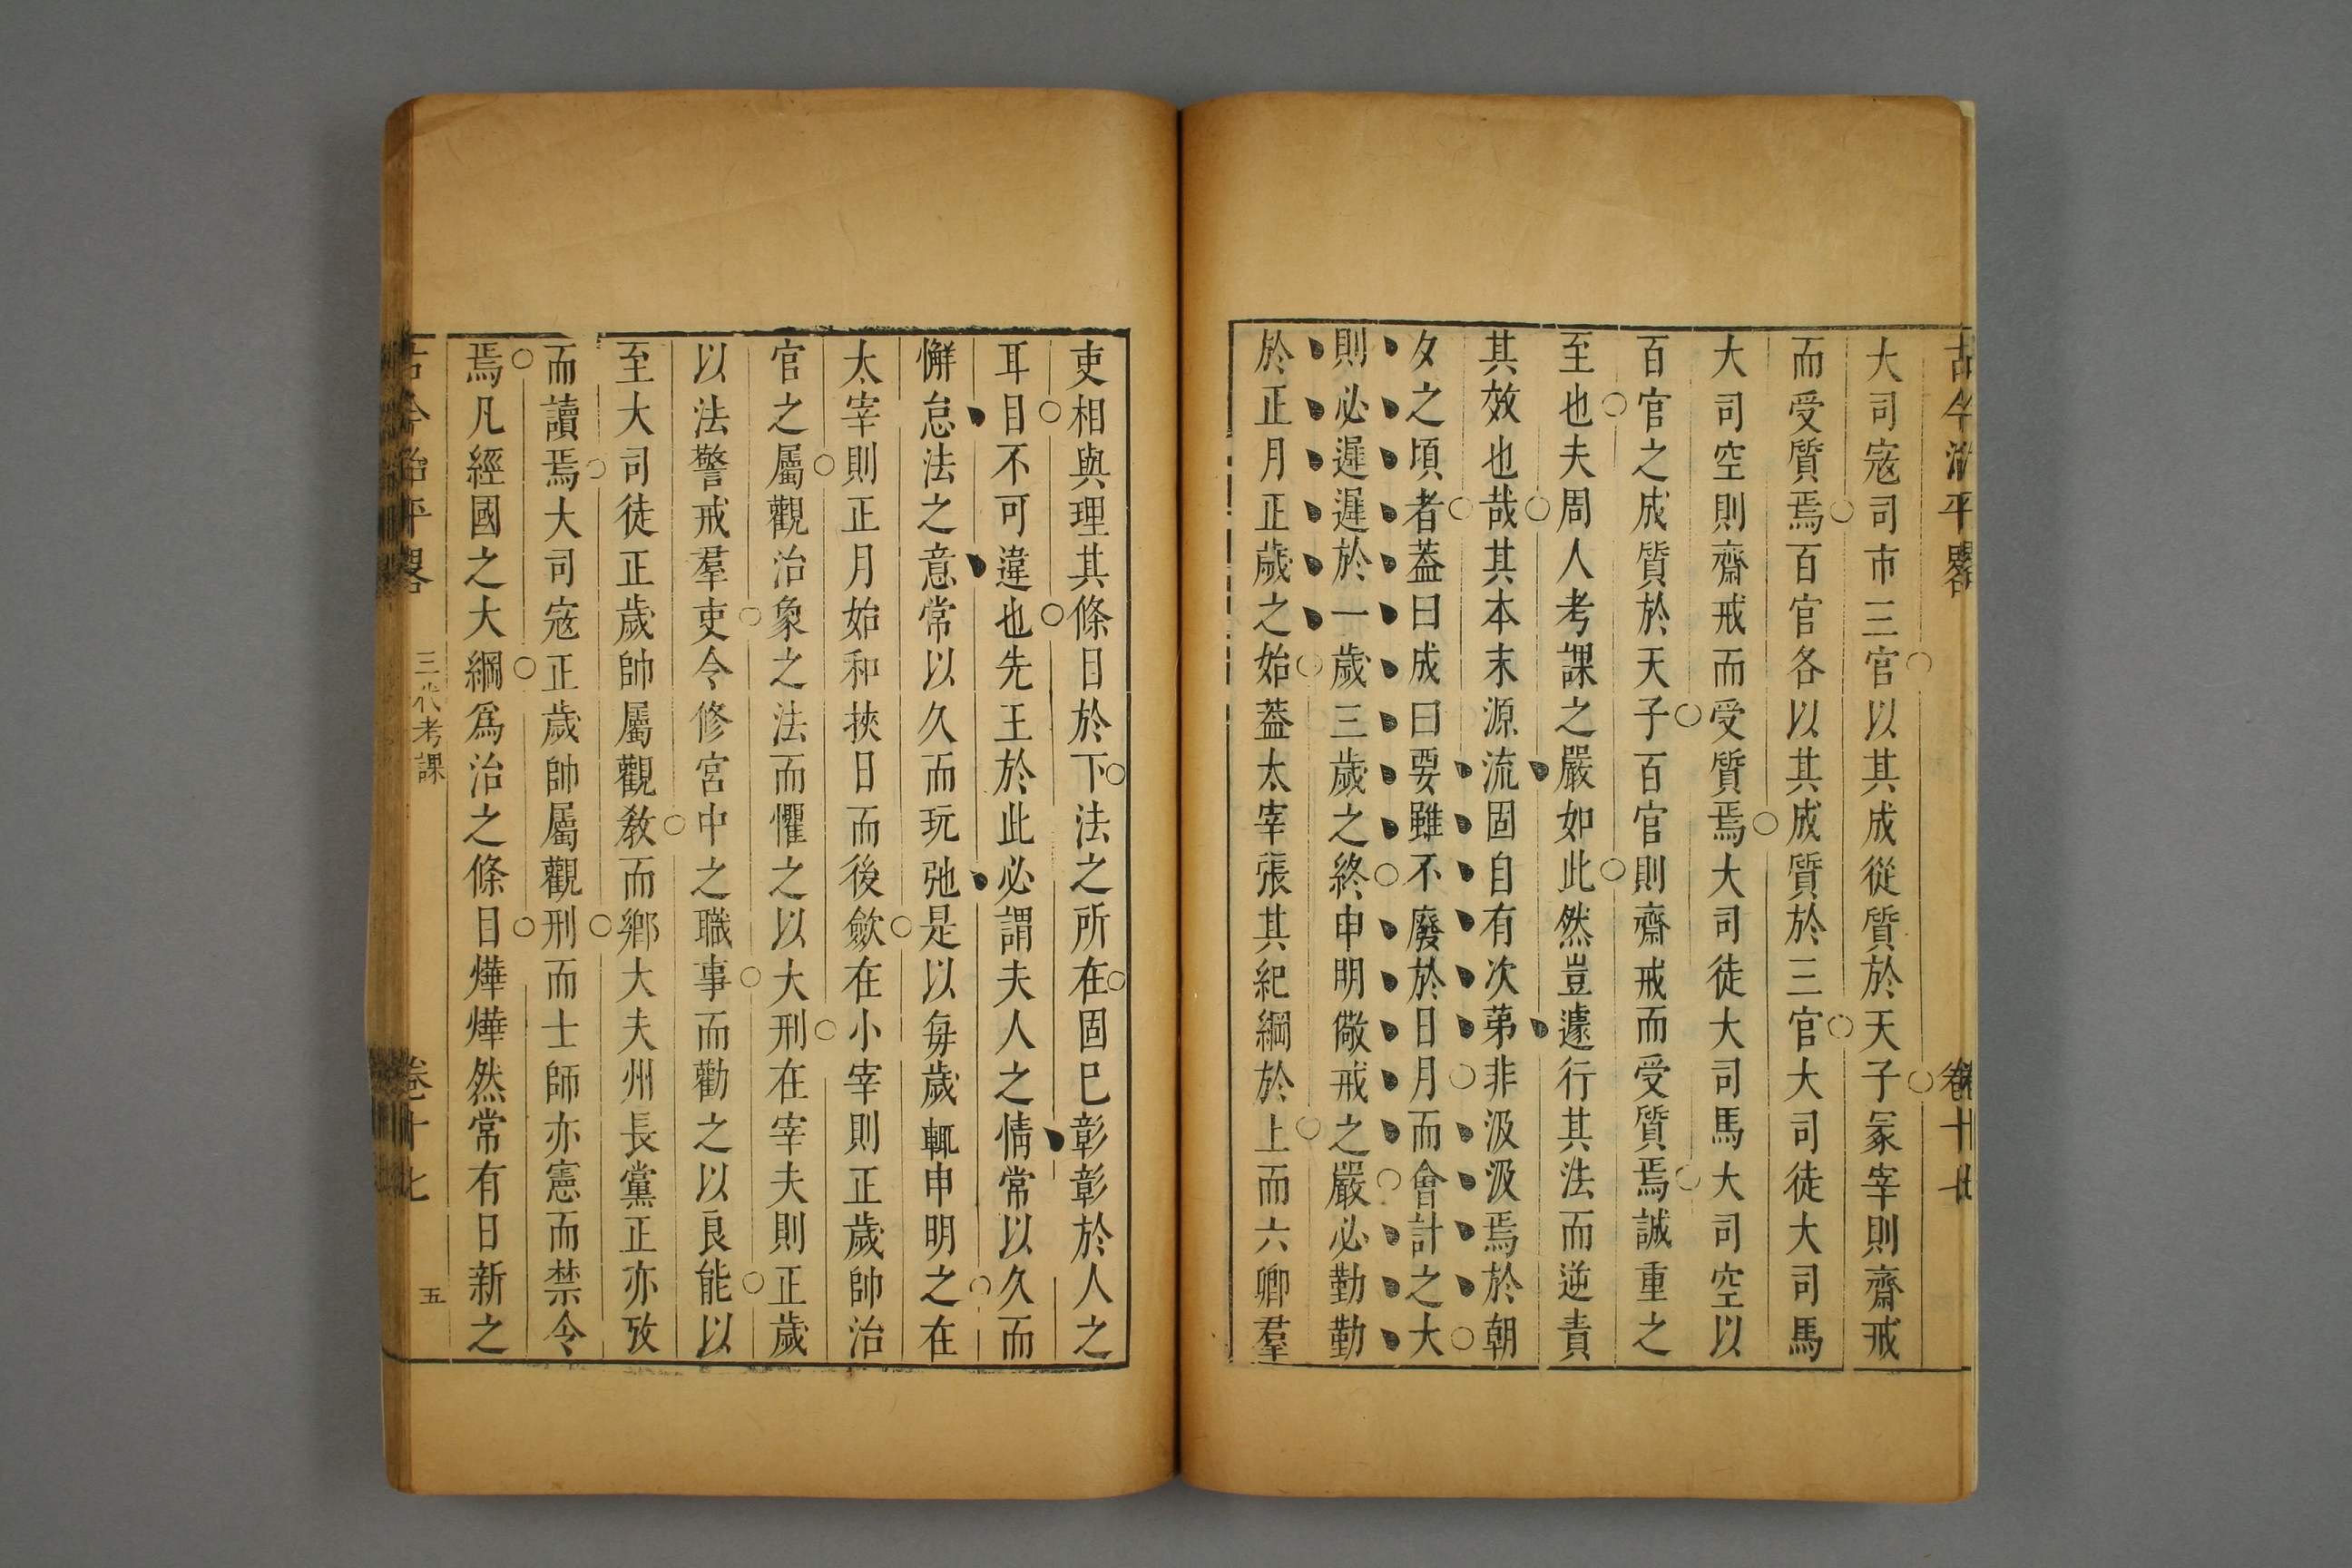 古今治平畧
卷十七
大司寇司市三官以其成從質於天子冢宰則齋戒
而受質焉百官各以其成質於三官大司徒大司馬
大司空則齋戒而受質焉大司徒大司馬大司空以
百官之成質於天子百官則齋戒而受質焉誠重之
至也夫周人考課之嚴如此然豈遽行其法而逆責
其效也哉其本末源流固自有次苐非汲汲焉於朝
夕之頃者葢曰成曰要雖不廢於日月而會計之大
則必遲遲於一歲三歲之終申明儆戒之嚴必勤勤
於正月正歲之始葢太宰張其紀綱於上而六卿羣
吏相與理其條目於下法之所在固已彰彰於人之
耳目不可違也先王於此必謂夫人之情常以久而
懈怠法之意常以久而玩弛是以每歲輒申明之在
太宰則正月始和挾日而後斂在小宰則正歲帥治
官之屬觀治象之法而懼之以大刑在宰夫則正歲
以法警戒羣吏令修宮中之職事而勸之以良能以
至大司徒正歲帥屬觀教而鄉大夫州長黨正亦攷
而讀焉大司寇正歲帥屬觀刑而士師亦憲而禁令
焉凡經國之大綱爲治之條目燁燁然常有日新之
古今治平畧
三代考課
卷十七
五